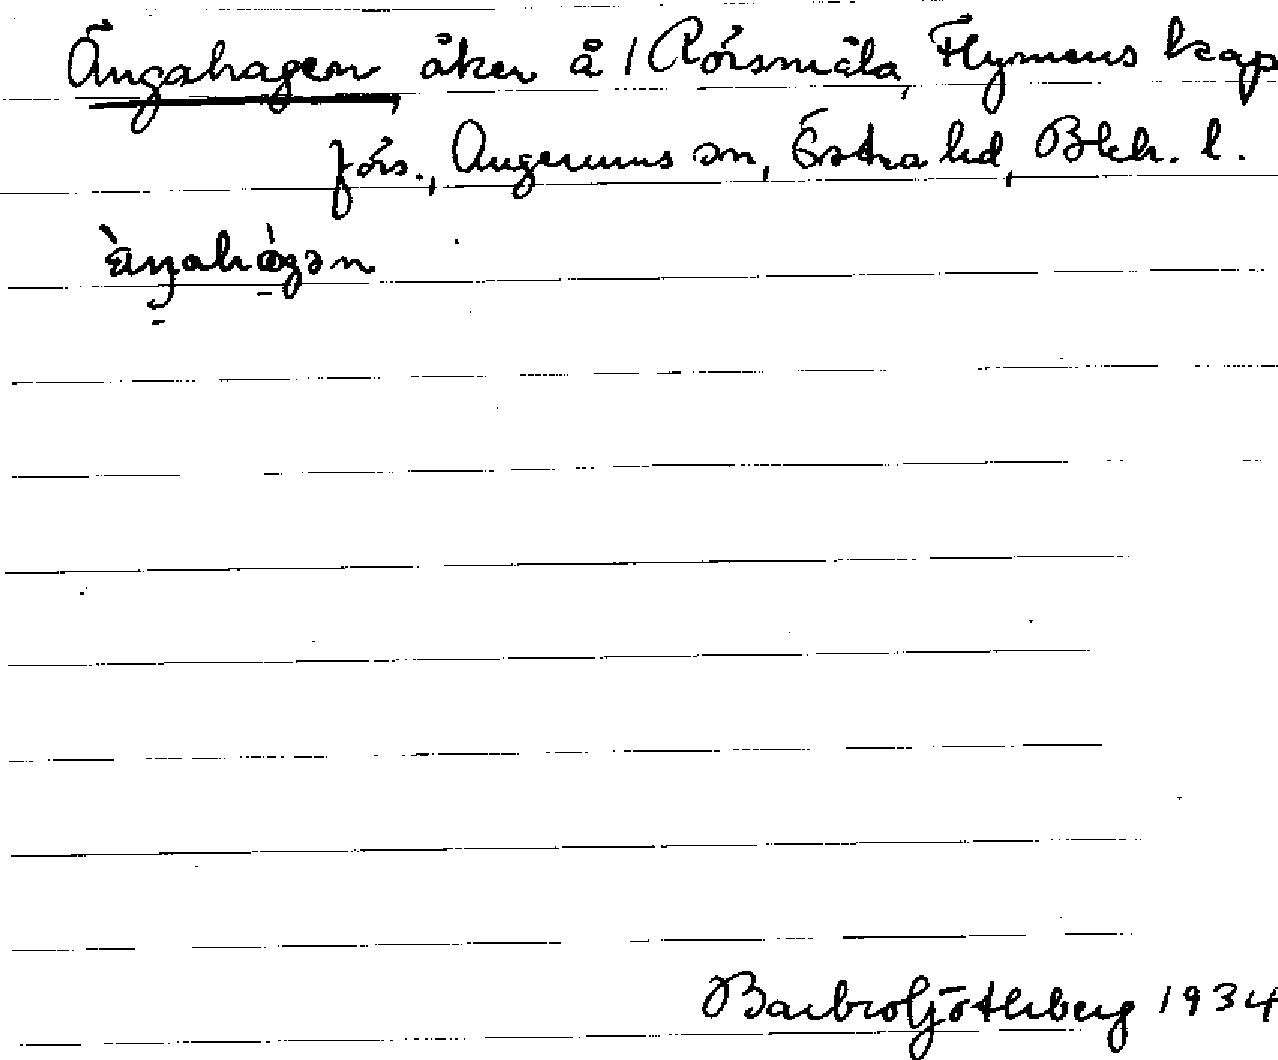 Ängahagen åker å 1 Rörsmåla, Flymens kap
förs., Augerums sn, Östra hd, Blek. l.
Barbro Götlberg 1934